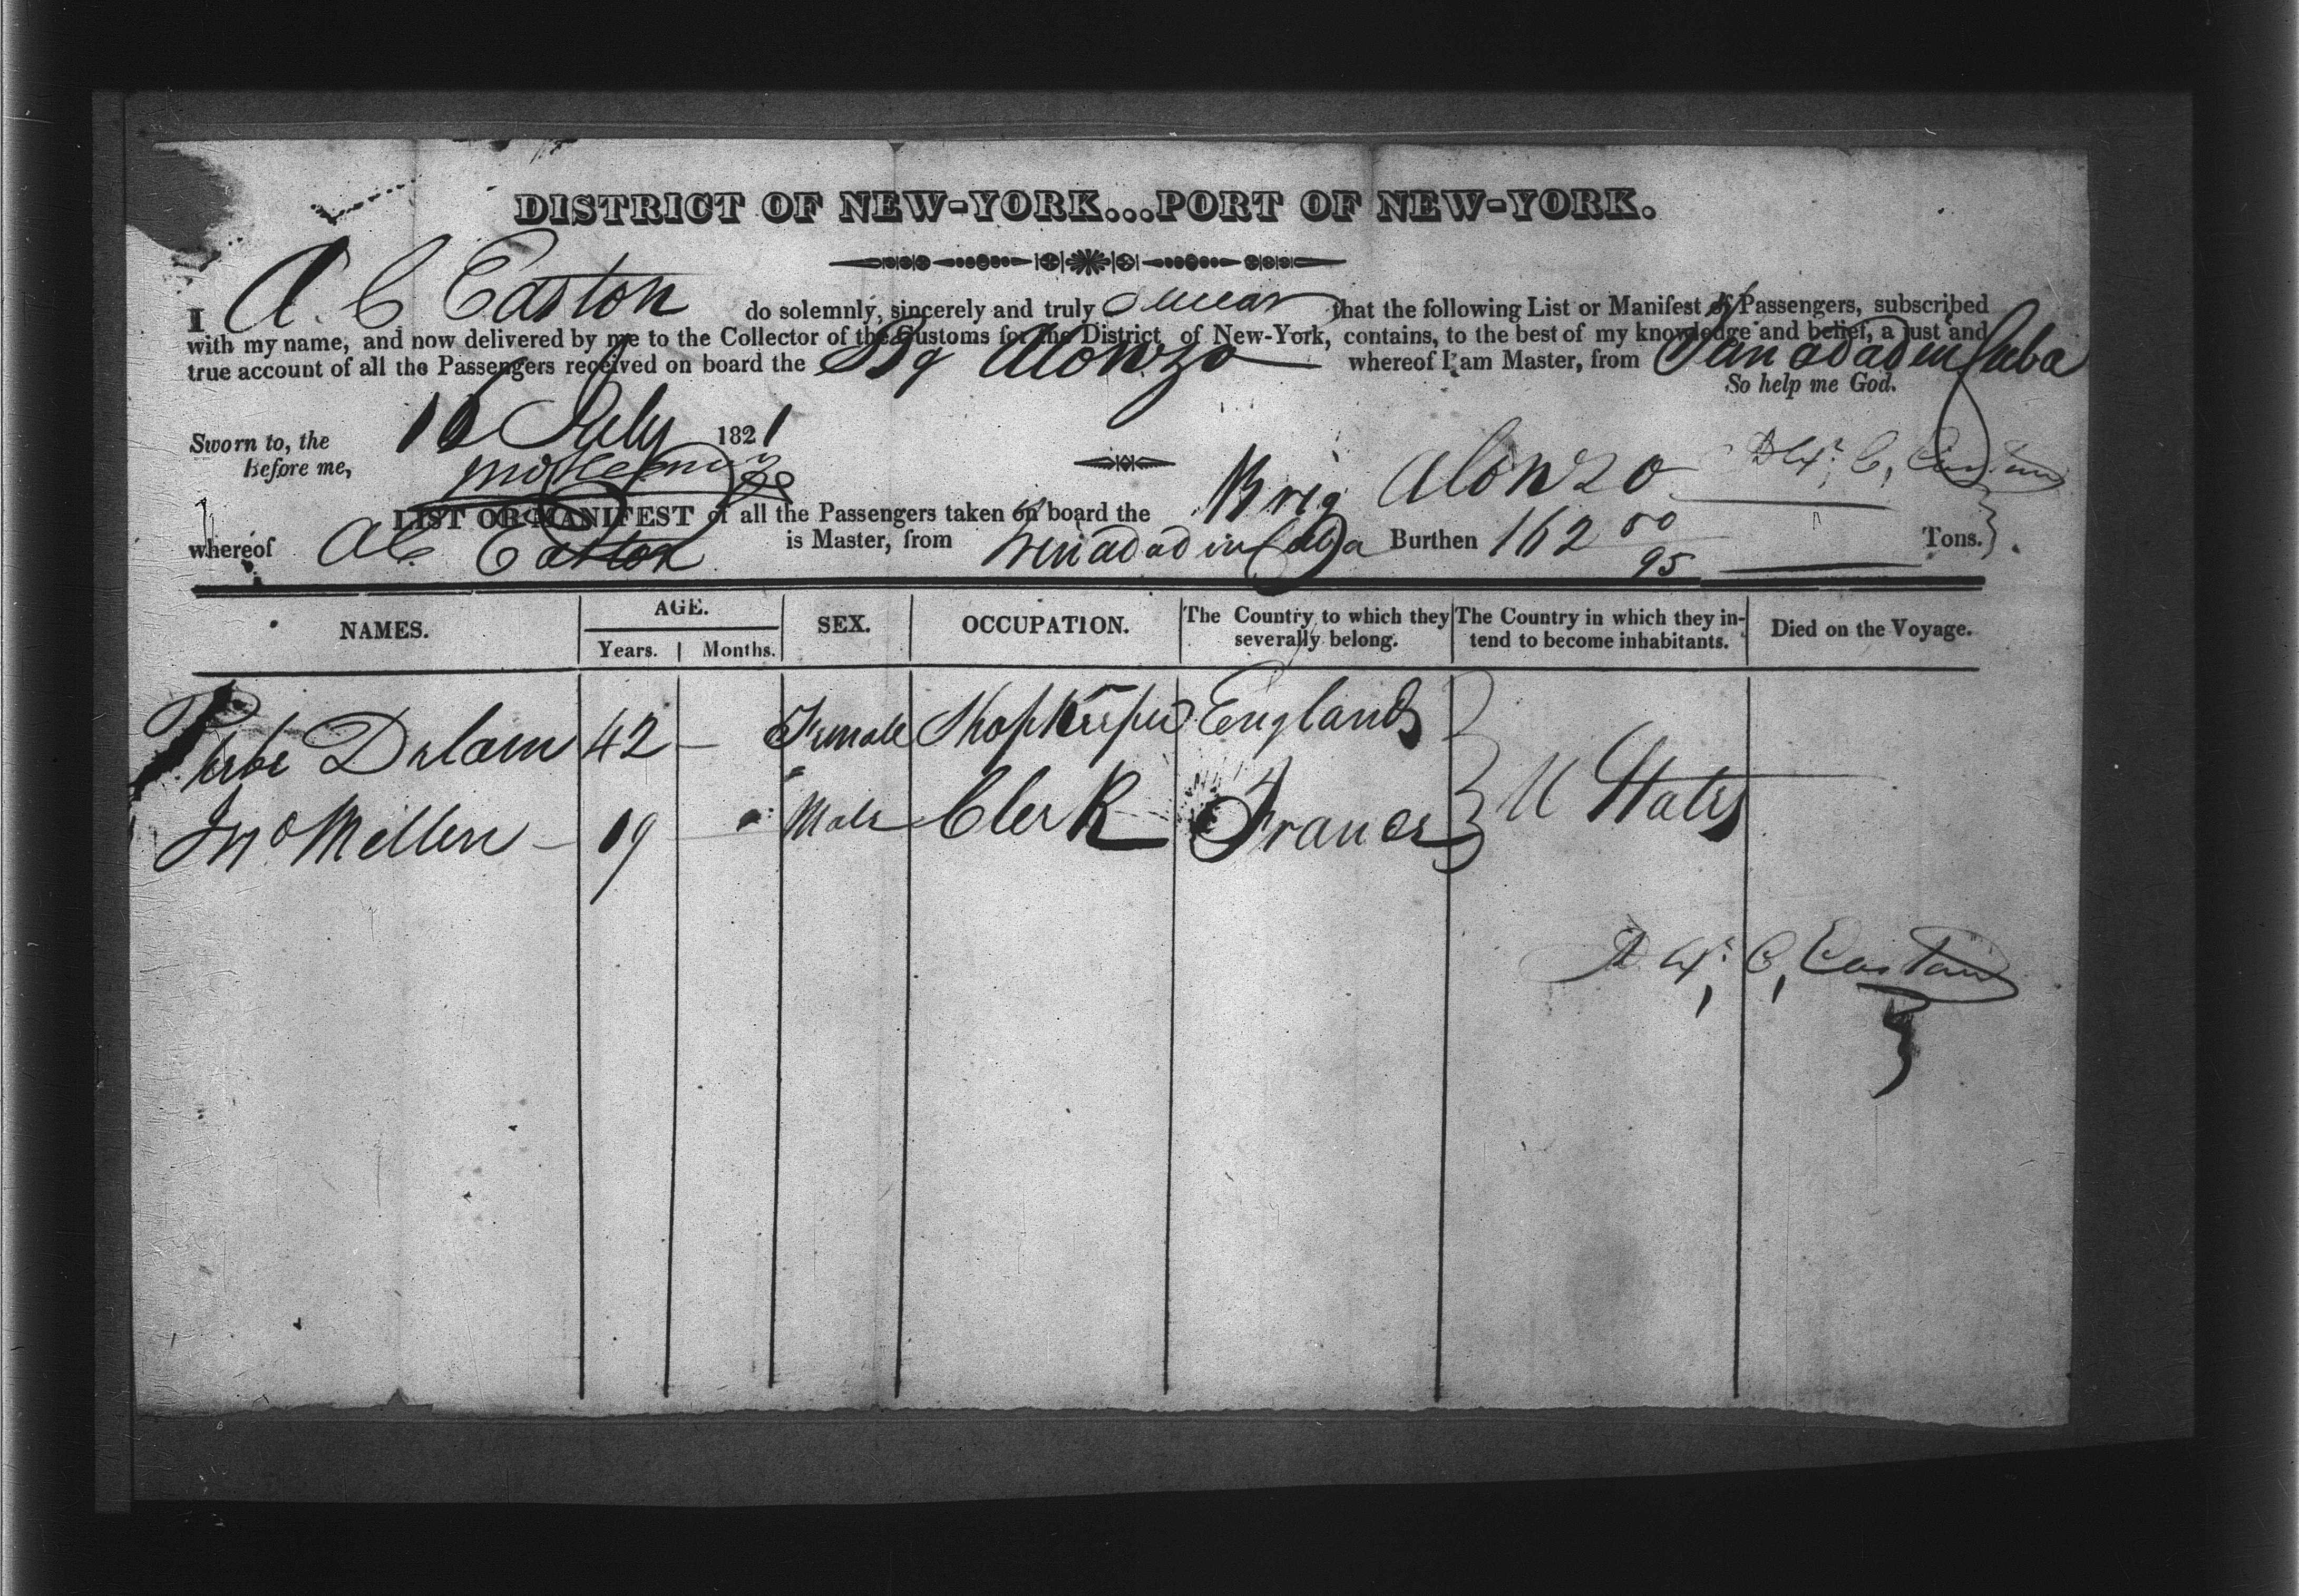 DISTRICT OF NEW-YORK...PORT OF NEW-YORK.
I A. C Easton do solemnly, sincerely and truly swear that the following List or Manifest of Passengers, subscribed
with my name, and now delivered by me to the Collector of the Customs for the District of New-York, contains, to the best of my knowledge and belief, a just and
true account of all the Passengers received on board the Bg Alonzo whereof I am Master, from Trinadad in Cuba
So help me God.
Sworn to, the 16 July 1821
Before me,
Alxr. C, Easton
LIST OR MANIFEST of all the Passengers taken on board the Brig Alonzo
whereof A C Easton is Master, from Trinadad in Cuba Burthen 162 80/95 Tons.
NAMES. AGE. SEX. OCCUPATION. The Country to which they severally belong. The Country in which they intend to become inhabitants. Died on the Voyage.
Years. Months.
Phebe 42 — Female Shopkeeper England
Jno Mellen — 19 — Male Clerk France U States
Alxr. C, Easton